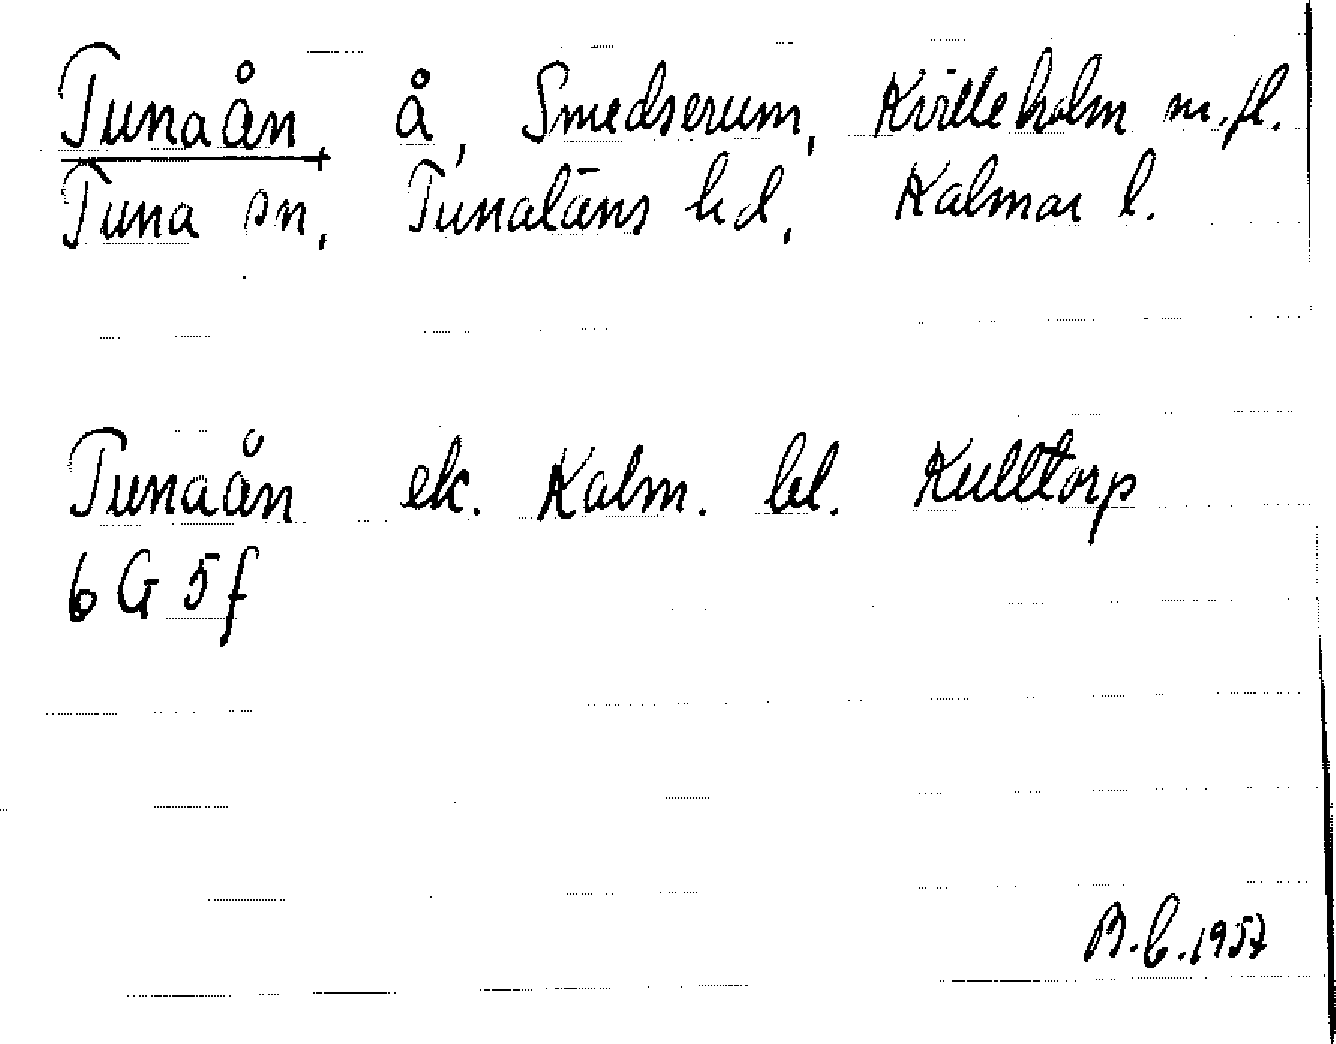 Tunaån, å, Smedserum, Kvilleholm m.fl.
Tuna sn, Tunaläns hd, Kalmar l.
Tunaån ek. Kalm. bl. Kulltorp
6 G 5 f
B.C. 1957